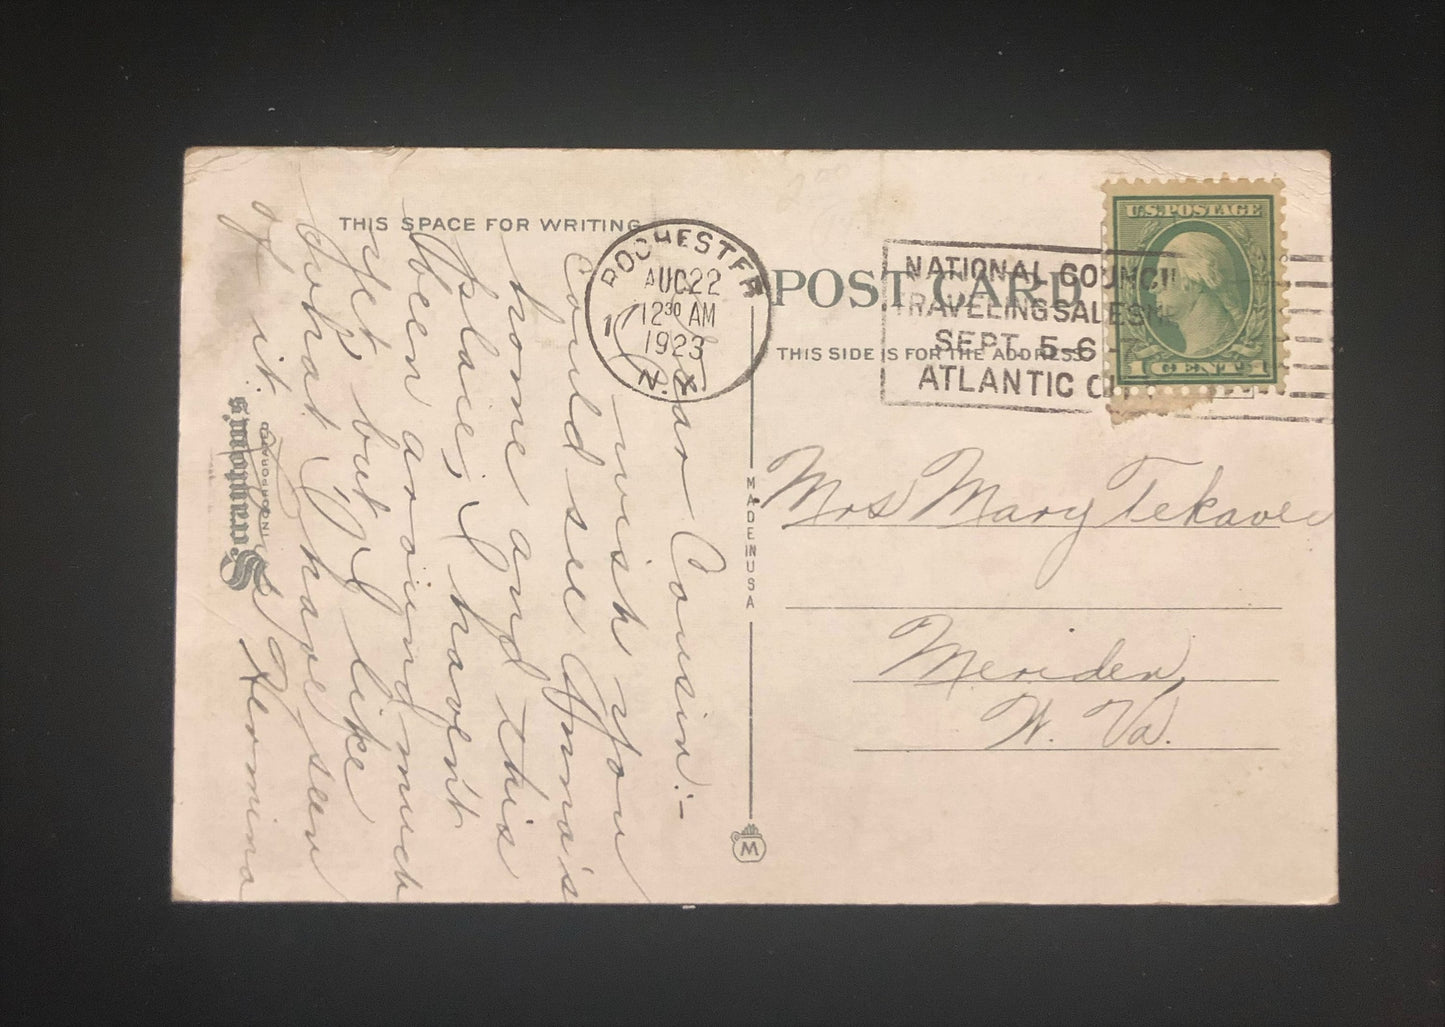 THIS SPACE FOR WRITING
Dear Cousin:-
wish you
could see Anna's
home and this
place, I haven't
been around much
yet but I like
what I have seen
of it.
Hermina
Scrantom's
INCORPORATED
ROCHESTER
AUG 22
12 30 AM
1923
N.Y.
POST CARD
THIS SIDE IS FOR THE ADDRESS
NATIONAL COUNCIL
TRAVELING SALESME
SEPT. 5-6-7
ATLANTIC CI
U.S. POSTAGE
1 CENT 1
MADE IN USA
M
Mrs Mary Tekavec
Meriden,
W. Va.